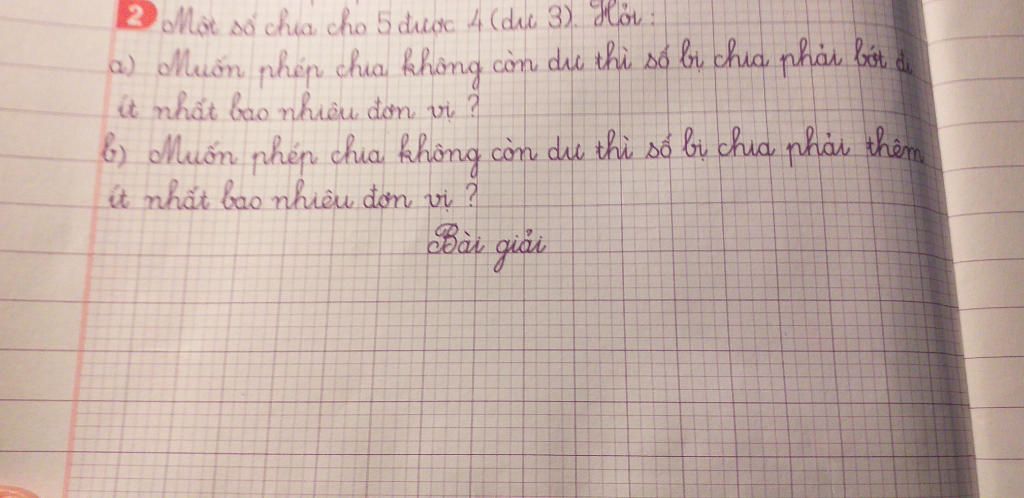 2 Một số chia cho 5 được 4 (dư 3). Hỏi:
a) Muốn phép chia không còn dư thì số bị chia phải bớt đi
ít nhất bao nhiêu đơn vị?
b) Muốn phép chia không còn dư thì số bị chia phải thêm
ít nhất bao nhiêu đơn vị?
Bài giải